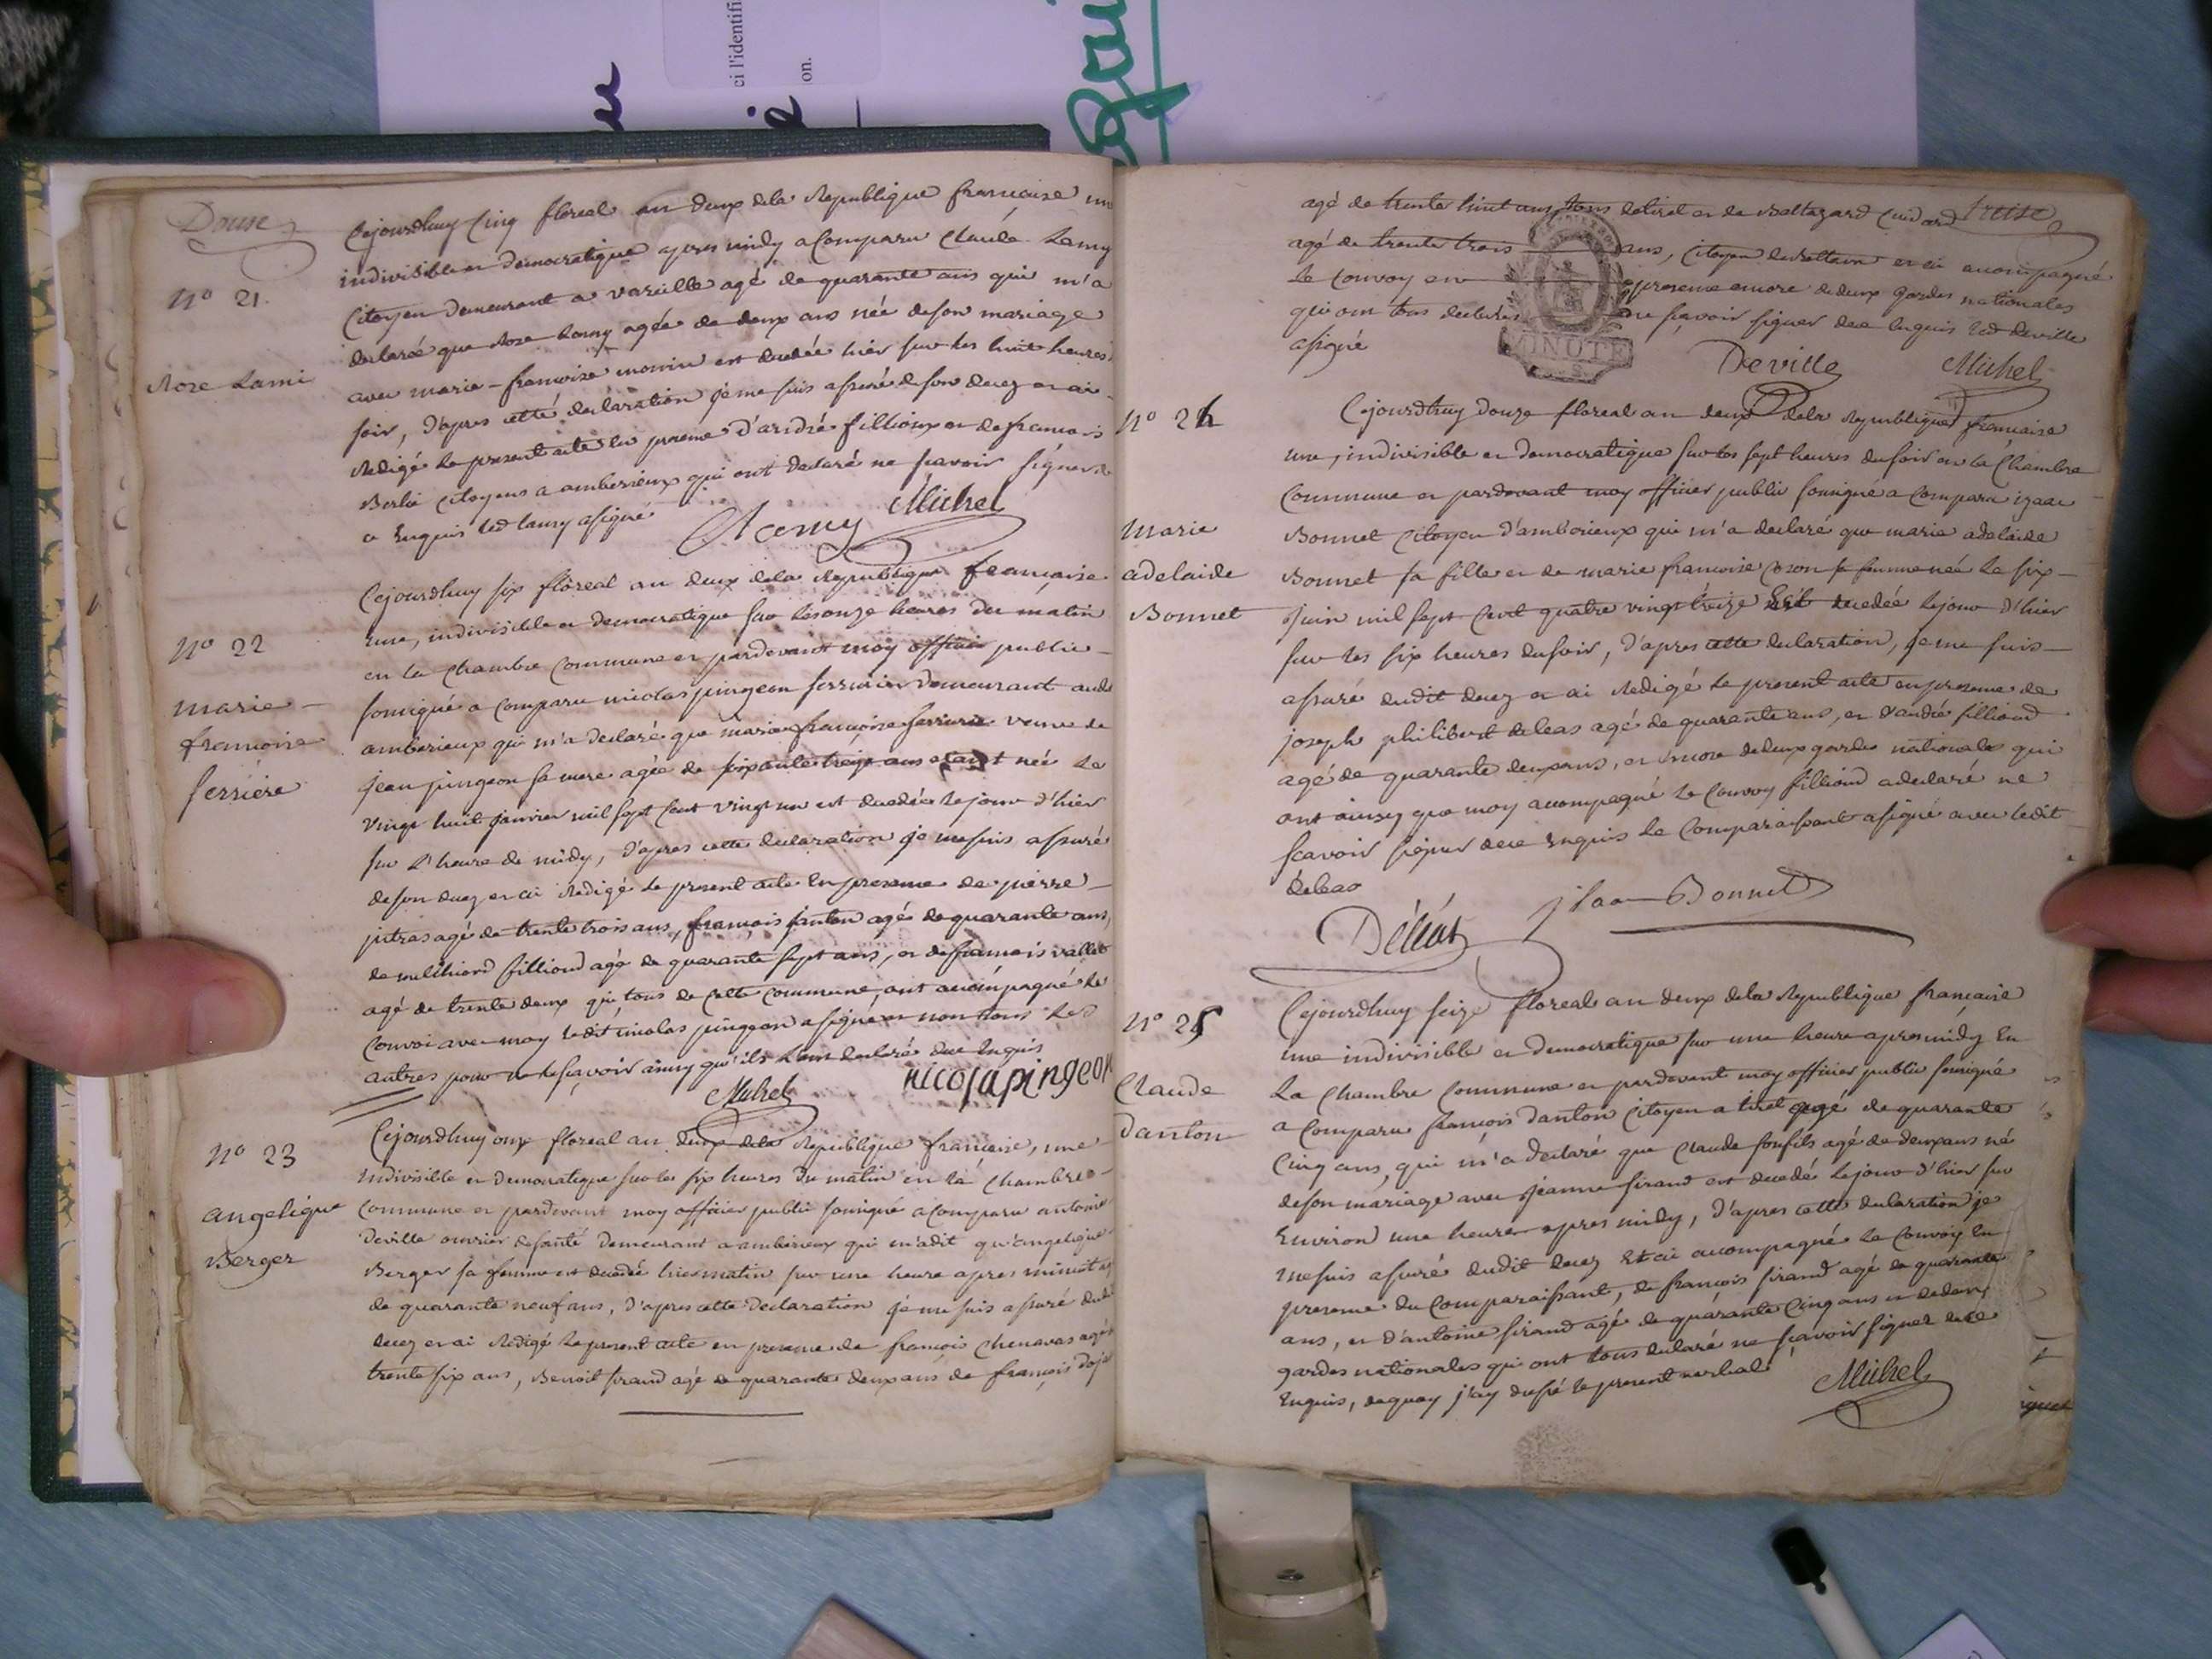 ci l'identifi
on.
Douze
Cejourdhuy Cinq floreal an deux dela Republique francaise un
indivisible et democratique apres midy a Comparu Claude Lemy
N° 21.
Citoyen demeurant a vareille agé de quarante ans qui m'a
declaré que Rose Lemy agée de deux ans née de son mariage
Roze Lami
avec marie-francoise monin est decedée hier sur les huit heures
soir, d'apres cette declaration je me suis assuré de son decez et ai
Redigé le present acte en presence d'andré fillioux et de francois
Berlie Citoyens a amberieux qui ont declaré ne scavoir signer de
ce Enquis led Lamy a signé
Michel
Cejourdhuy six floreal an deux dela Republique francaise
une, indivisible et democratique sur les onze heures du matin
N° 22
en la Chambre Commune et pardevant moy officier public
marie
francoise
ferriere
soussigné a comparu nicolas pingeon serrurier demeurant aud
amberieux qui m'a declaré que marie francoise ferriere veuve de
jean pingeon sa mere agée de soixante treize ans etant née le
vingt huit janvier mil sept Cent vingt un est decedée le jour d'hier
sur L'heure de midy, d'apres cette declaration je me suis assuré
de son decez et ai Redigé le present acte en presence de pierre
jutras agé de trente trois ans, francois janton agé de quarante ans,
de melchiord filliond agé de quarante sept ans, et de francois vallet
agé de trente deux qui tous de cette Commune, ont accompagné le
Convoi avec moy ledit nicolas pingeon a signé et non tous les
autres pour ne le scavoir ainsy qu'ils L'ont declaré de ce Enquis
Michel nicola pingeon
N° 23
Cejourdhuy onze floreal an deux dela Republique francaise, une
Indivisible et democratique sur les six heures du matin en la Chambre
angelique
Berger
Commune et pardevant moy officier public soussigné a Comparu antoine
Deville ouvrier de santé demeurant a amberieux qui m'a dit qu'angelique
Berger sa femme est decedée hier matin sur une heure apres minuit
de quarante neuf ans, d'apres cette Declaration je me suis assuré dudi
decez et ai Redigé le present acte en presence de francois Chenavas agé
trente six ans, Benoit sirand agé de quarante deux ans de francois
agé de trente huit ans, tous de tiret et de Baltazard Cuidard treise
agé de trente trois ans, Citoyen de et ai accompagné
le Convoy en presence encore de deux gardes nationales
qui ont tous declarés ne scavoir signer de ce Enquis led deville
a signé
MINUTE
Deville Michel
N° 24
Cejourdhuy douze floreal an deux dela Republique francaise
une, indivisible et democratique sur les sept heures du soir en la Chambre
Commune et pardevant moy officier public soussigné a Comparu izaac
Marie
adelaide
Bonnet
Bonnet Citoyen d'amberieux qui m'a declaré que marie adelaide
Bonnet sa fille et de marie francoise sa femme née le six
juin mil sept Cent quatre vingt treize Est decedée le jour d'hier
sur les six heures du soir, d'apres cette declaration, je me suis
assuré dudit decez et ai Redigé le present acte en presence de
joseph philibert deleas agé de quarante ans, et d'andré filliond
agé de quarante deux ans, et encore de deux gardes nationales qui
ont ainsy que moy accompagné le Convoy filliond a declaré ne
scavoir signer de ce Enquis le Comparaissant a signé avec ledit
deleas
Déléas isaac Bonnet
N° 25
Cejourdhuy seize floreal an deux dela Republique francaise
une indivisible et democratique sur une heure apres midy En
Claude
danton
La Chambre Commune et pardevant moy officier public soussigné
a Comparu francois danton Citoyen a tiret agé de quarante
Cinq ans, qui m'a declaré que Claude son fils agé de deux ans né
de son mariage avec jeanne sirand est decedé le jour d'hier sur
Environ une heure apres midy, d'apres cette declaration je
me suis assuré dudit decez Et ai accompagné le Convoy En
presence du Comparaissant, de francois sirand agé de quarante
ans, et d'antoine sirand agé de quarante Cinq ans et de deux
gardes nationales qui ont tous declaré ne scavoir signer de ce
Enquis, de quoy j'ay dressé le present verbal
Michel